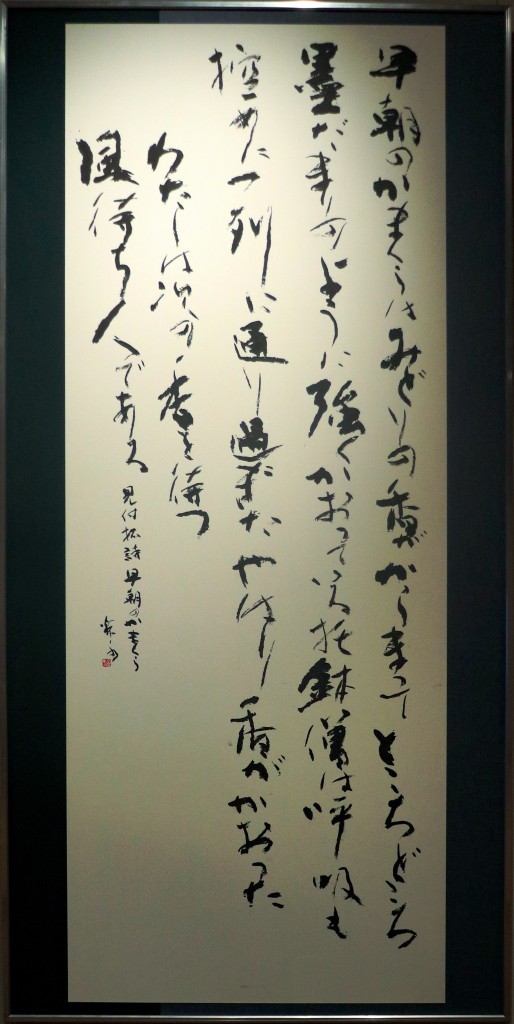 早朝のかまくらはみどりの香がから来てところどころ
墨だまりのように強くかおっている托鉢僧は呼吸も
控めに一列に通り過ぎたやはり香がかおった
わたしは次の香を待つ
風待ち人である
見付 詩 早朝のかまくら